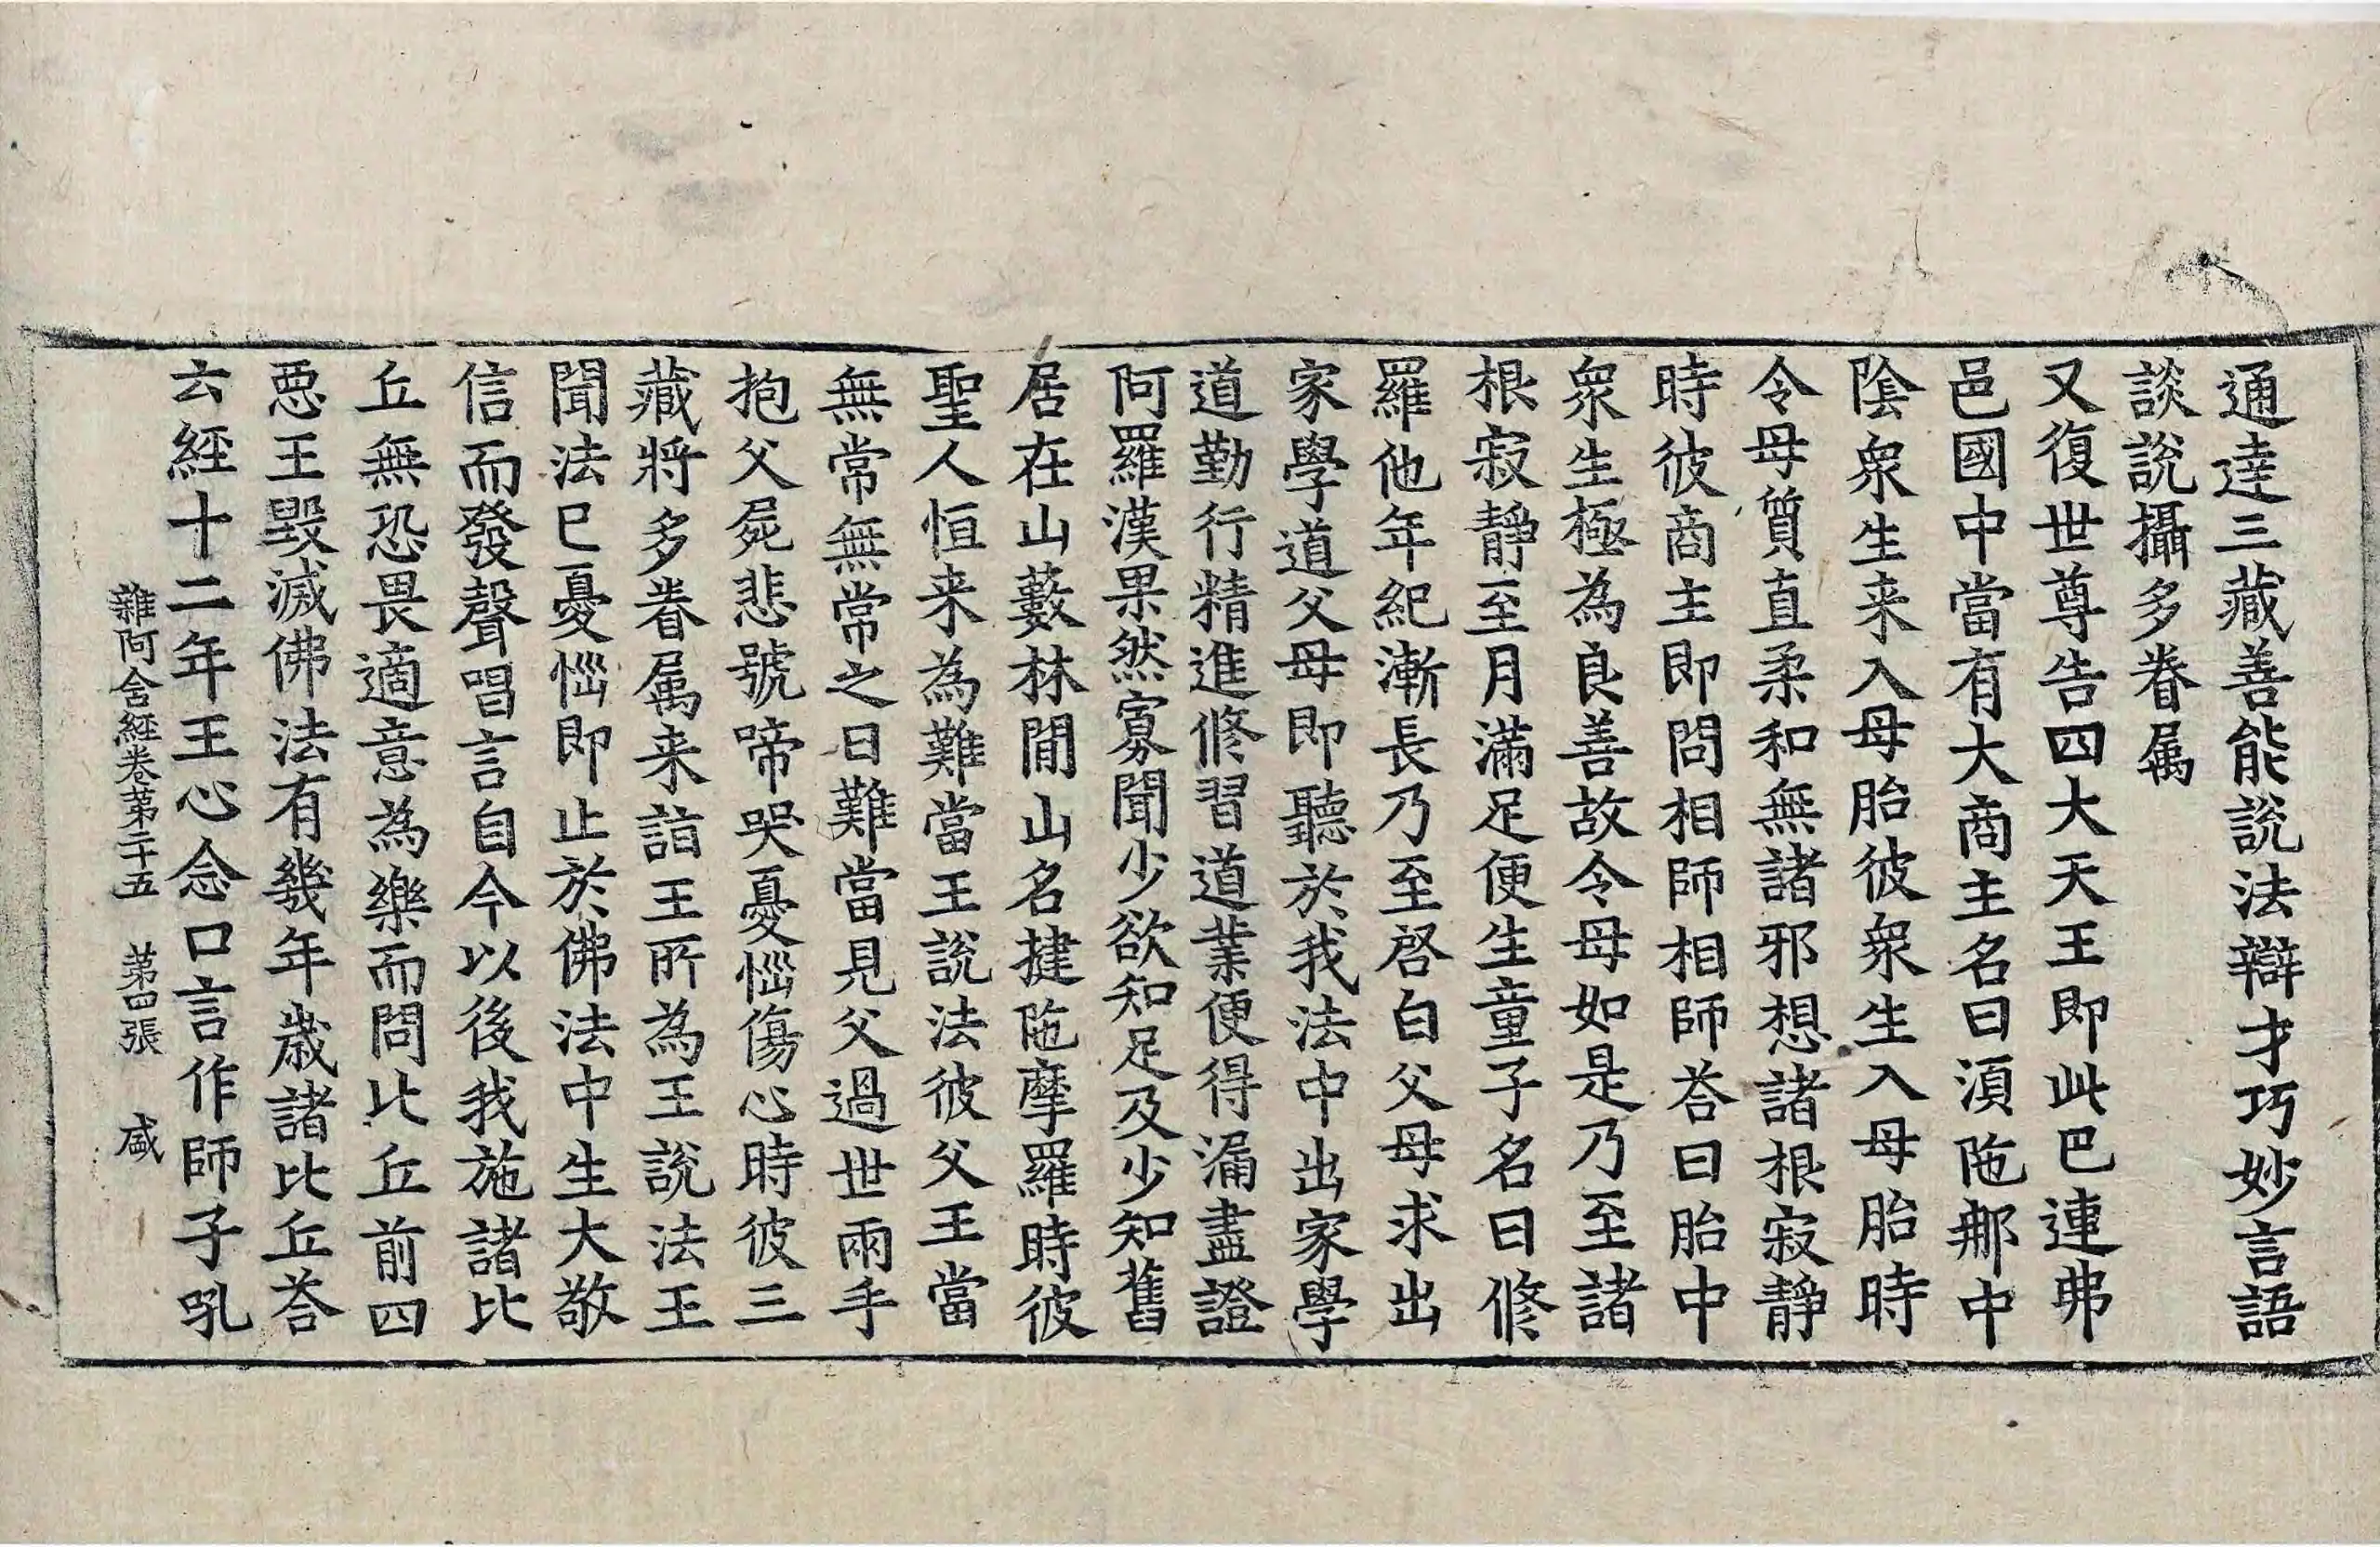 通達三藏善能說法辯才巧妙言語
談說攝多眷属
又復世尊告四大天王即此巴連弗
邑國中當有大商主名曰湏陁那中
隂衆生来入母胎彼衆生入母胎時
令母質直柔和無諸邪想諸根寂靜
時彼商主即問相師相師荅曰胎中
衆生極為良善故令母如是乃至諸
根寂靜至月滿足便生童子名曰修
羅他年紀漸長乃至啓白父母求出
家學道父母即聽於我法中出家學
道勤行精進修習道業便得漏盡證
阿羅漢果然寡聞少欲知足及少知舊
居在山藪林閒山名揵陁摩羅時彼
聖人恒来為難當王說法彼父王當
無常無常之日難當見父過世兩手
抱父屍悲號啼哭憂惱傷心時彼三
藏將多眷属来詣王所為王說法王
聞法已憂惱即止於佛法中生大敬
信而發聲唱言自今以後我施諸比
丘無恐畏適意為樂而問比丘前四
惡王毀滅佛法有幾年歲諸比丘荅
云經十二年王心念口言作師子吼
雜阿含經卷第二十五　第四張　盛